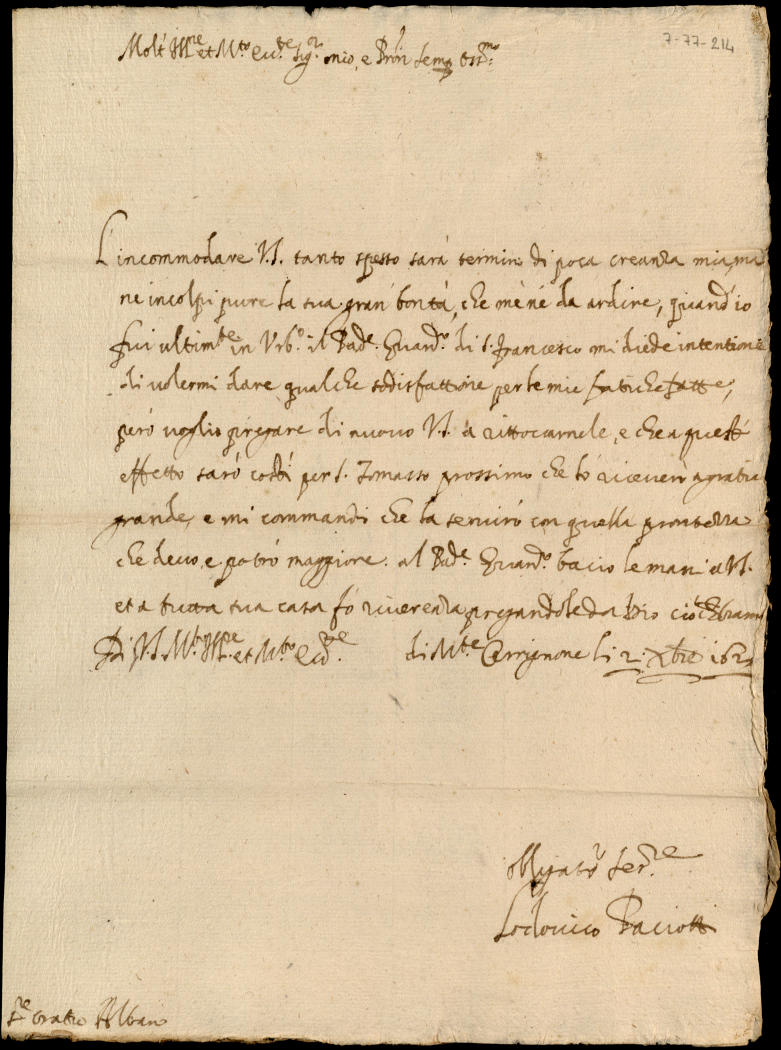 7-77-214
Molt' Ill.re et M.to Ecc.te Sig.r mio, e Pron' semp. oss.mo
L'incommodare V.S. tanto spesso sarà termine di poca creanza mia, ma
ne incolpi pure la sua gran' bontà, che me ne da ardire, quand'io
fui ultim.te in Urb.o il Pad.e Guard.o di S. Francesco mi diede intentione
di volermi dare qualche sodisfattione per le mie fatiche fatte,
però voglio pregare di nuovo V.S. a rittocarnele, e che a quest'
effetto sarò costì per S. Tomasso prossimo che lo riceverò a gratia
grande, e mi commandi che la servirò con quella prontezza
che devo, e potrò maggiore. al Pad.e Guard.o bacio le mani a V.S.
et a tutta sua casa fò riverenza pregandole da Dio ciò che brami
Di V.S. M.to Ill.re et M.to Ecc.te di M.te Cerrignone li 2. Xbre 162
Obligatis.o Ser.re
Lodovico Baciotti
S.re Oratio Albano